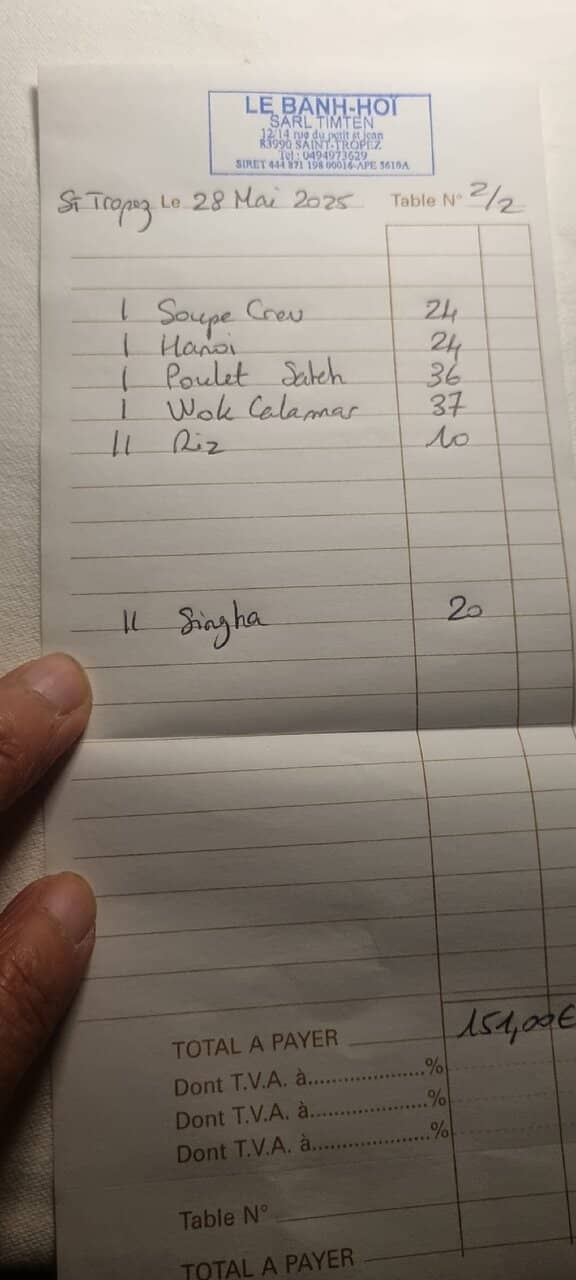 LE BANH-HOÏ
SARL TIMTEN
12/14 rue du petit st jean
83990 SAINT-TROPEZ
Tel : 0494973629
SIRET 444 871 198 00016-APE 5610A
St Tropez Le 28 Mai 2025 Table N° 2/2
1 Soupe Crev 24
1 Hanoi 24
1 Poulet Sateh 36
1 Wok Calamar 37
11 Riz 10
11 Singha 20
TOTAL A PAYER 151,00€
Dont T.V.A. à....................%
Dont T.V.A. à....................%
Dont T.V.A. à....................%
Table N°
TOTAL A PAYER